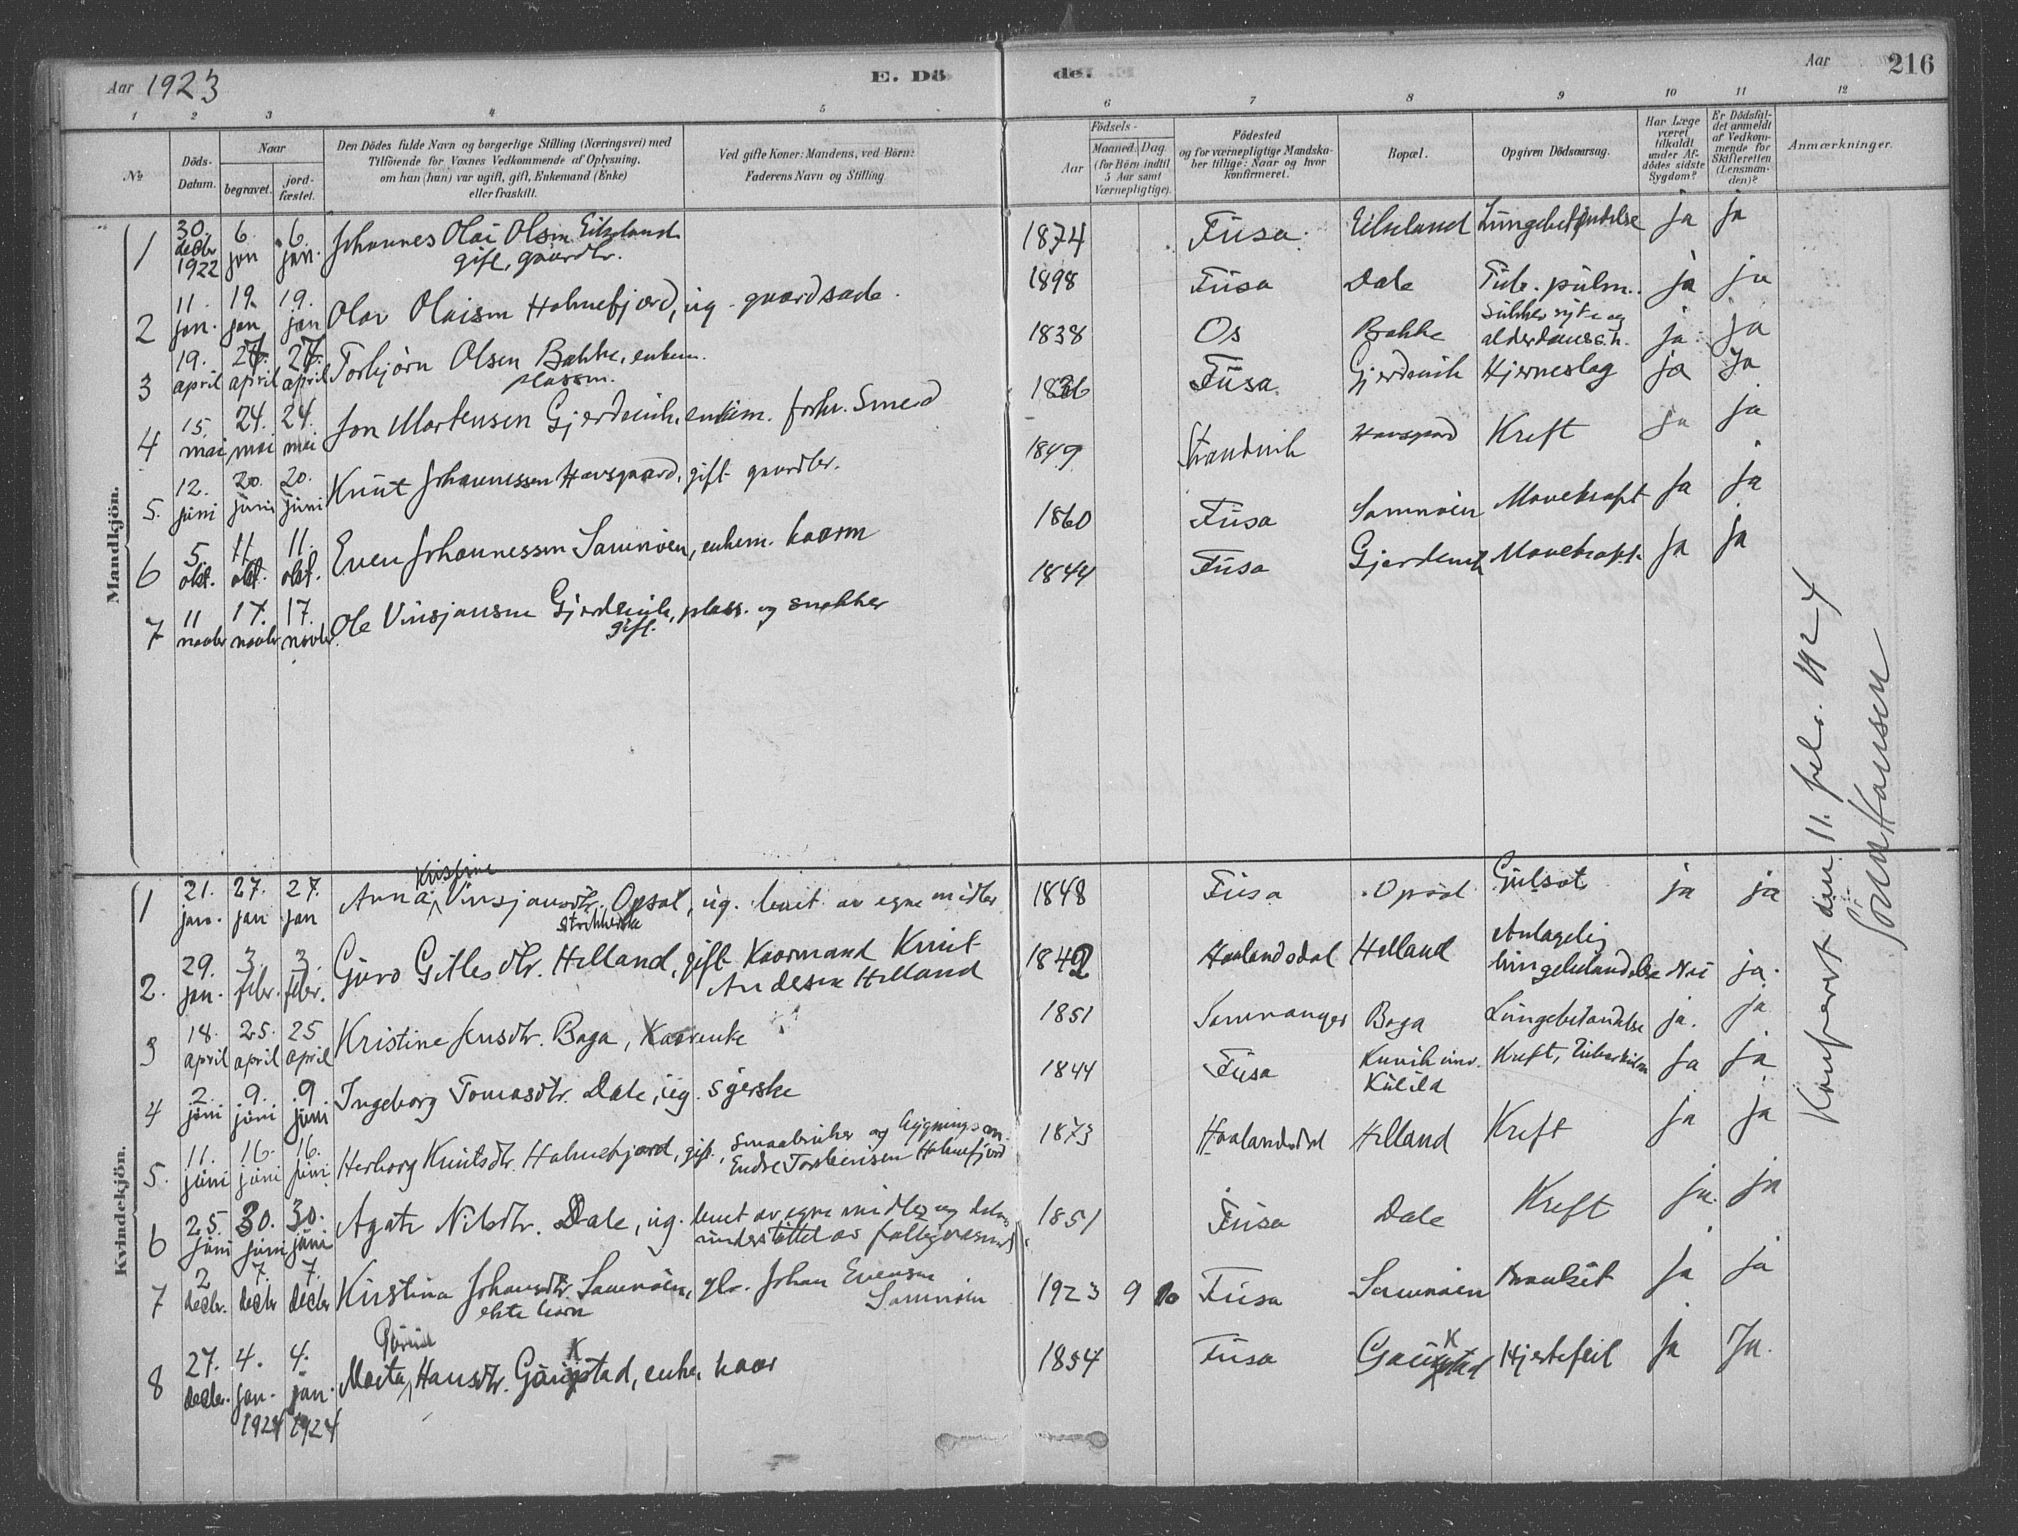 Aar 1923 E. Döde. Aar 216
1 2 3 4 5 6 7 8 9 10 11 12
№ Döds-Datum. Naar begravet. jordfæstet. Den Dödes fulde Navn og borgerlige Stilling (Næringsvei) med Tilföiende for Voxnes Vedkommende af Oplysning, om han (hun) var ugift, gift, Enkemand (Enke) eller fraskilt. Ved gifte Koner: Mandens, ved Börn: Faderens Navn og Stilling Födsels- Aar Maaned. Dag. (for Börn indtil 5 Aar samt Værnepligtige). Födested og for værnepligtige Mandskaber tillige: Naar og hvor konfirmeret. Bopæl. Opgiven Dödsaarsag. Har Læge været tilkaldt under Afdödes sidste Sygdom? Er Dödsfaldet anmeldt af Vedkommende for Skifteretten (Lensmanden)? Anmærkninger.
Mandkjön.
1 30. decbr 1922 6. jan 6. jan. Johannes Olai Olsen Eikeland gift, gaardbr. 1874 Fusa. Eikeland Lungebetændelse ja ja
2 11. jan. 19. jan 19. jan Olav Olaisen Holmefjord, ug. gaardsade. 1898 Fusa Dale Tub. pulm. ja ja
3 19. april 27. april 27. april Torbjörn Olsen Bakke, enkem. plassm. 1838 Os Bakke Sukkersyke og alderdomssv. ja ja
4 15. mai 24. mai 24. mai Jon Mortensen Gjerdevik, enkem. forhv. Smed 1836 Fusa. Gjerdevik Hjerneslag ja ja
5. 12. juni 20. juni 20. juni Knut Johannessen Havsgaard, gift gaardbr. 1849 Strandvik Havsgård Kreft ja ja
6 5. okt. 11. okt. 11. okt. Even Johannessen Samnöen, enkem. kaarm 1860 Fusa Samnöen Mavekræft ja ja
7 11 novbr 17. novbr 17. novbr. Ole Vinsjansen Gjerdevik, plass. og snekker gift. 1844 Fusa Gjerdevik Mavekræft ja ja
Kvindekjön.
1 21. jan. 27. jan 27. jan Anna Kristine Vinsjansdtr. Opsal, ug. levet av egne midler strikkerske 1848 Fusa Opsal Gulsot ja ja
2. 29. jan. 3. febr. 3. febr. Guro Gitlesdtr. Helland, gift Kaarmand Knut Andersen Helland 1842 Haalandsdal Helland Antagelig lungebetændelse Nei ja.
3 18. april 25. april 25 april Kristine Jensdtr. Boga, Kaarenke 1851 Samnanger Boga Lungebetændelse ja. ja
4 2. juni 9. juni 9 juni Ingeborg Tomasdtr. Dale, ug. syerske 1844 Fusa Kreft, Tuberkulose ja ja
5. 11. juni 16. juni 16. juni Herborg Knutsdtr. Holmefjord, gift, Smaabruker og bygningsm. Endre Torsteinsen Holmefjord 1873 Haalandsdal Helland Kreft ja ja
6 25. juni 30. juni 30. juni Agate Nilsdtr. Dale, ug. levet av egne midler og dels understöttet av fattigvæsenet 1851 Fusa Dale Kreft ja. ja
7 2 decbr. 7. decbr 7. decbr Kirstina Johansdtr. Samnöen, ekte barn gbr. Johan Evensen Samnöen 1923 9 20 Fusa Samnöen Bronkit ja ja
8 27. decbr. 4. jan. 1924 4. jan. 1924 Marta Hansdtr. Gaukstad, enke, kaar 1854 Fusa Gaukstad Hjertefeil ja Ja.
Konferert den 11. feb. 1924
Hansen